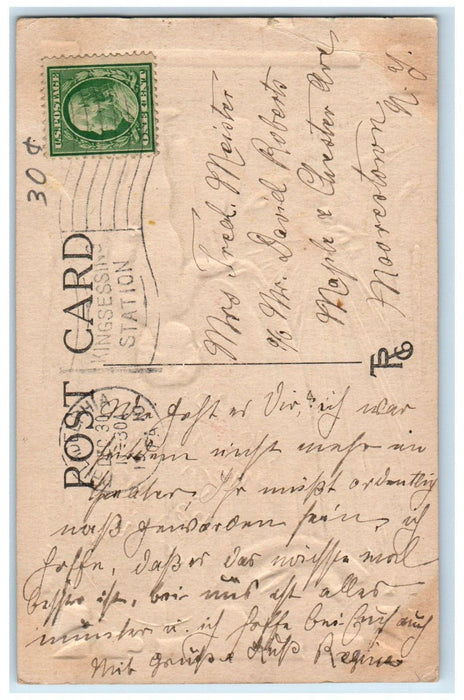 U.S. POSTAGE
ONE CENT
30¢
POST CARD
KINGSESSING
STATION
DEC 30
PA.
Mrs Fred. Meister
c/o Mr. David Roberts
Maple & Chester Ave
Moorestown
N. J.
Wie geht es Dir, ich war
nicht mehr im
Theater. Ihr müßt ordentlich
naß geworden sein, ich
hoffe, daß es das nächste mal
besser ist, bei uns ist alles
munter u. ich hoffe bei Euch auch
Mit Gruß & Kuß